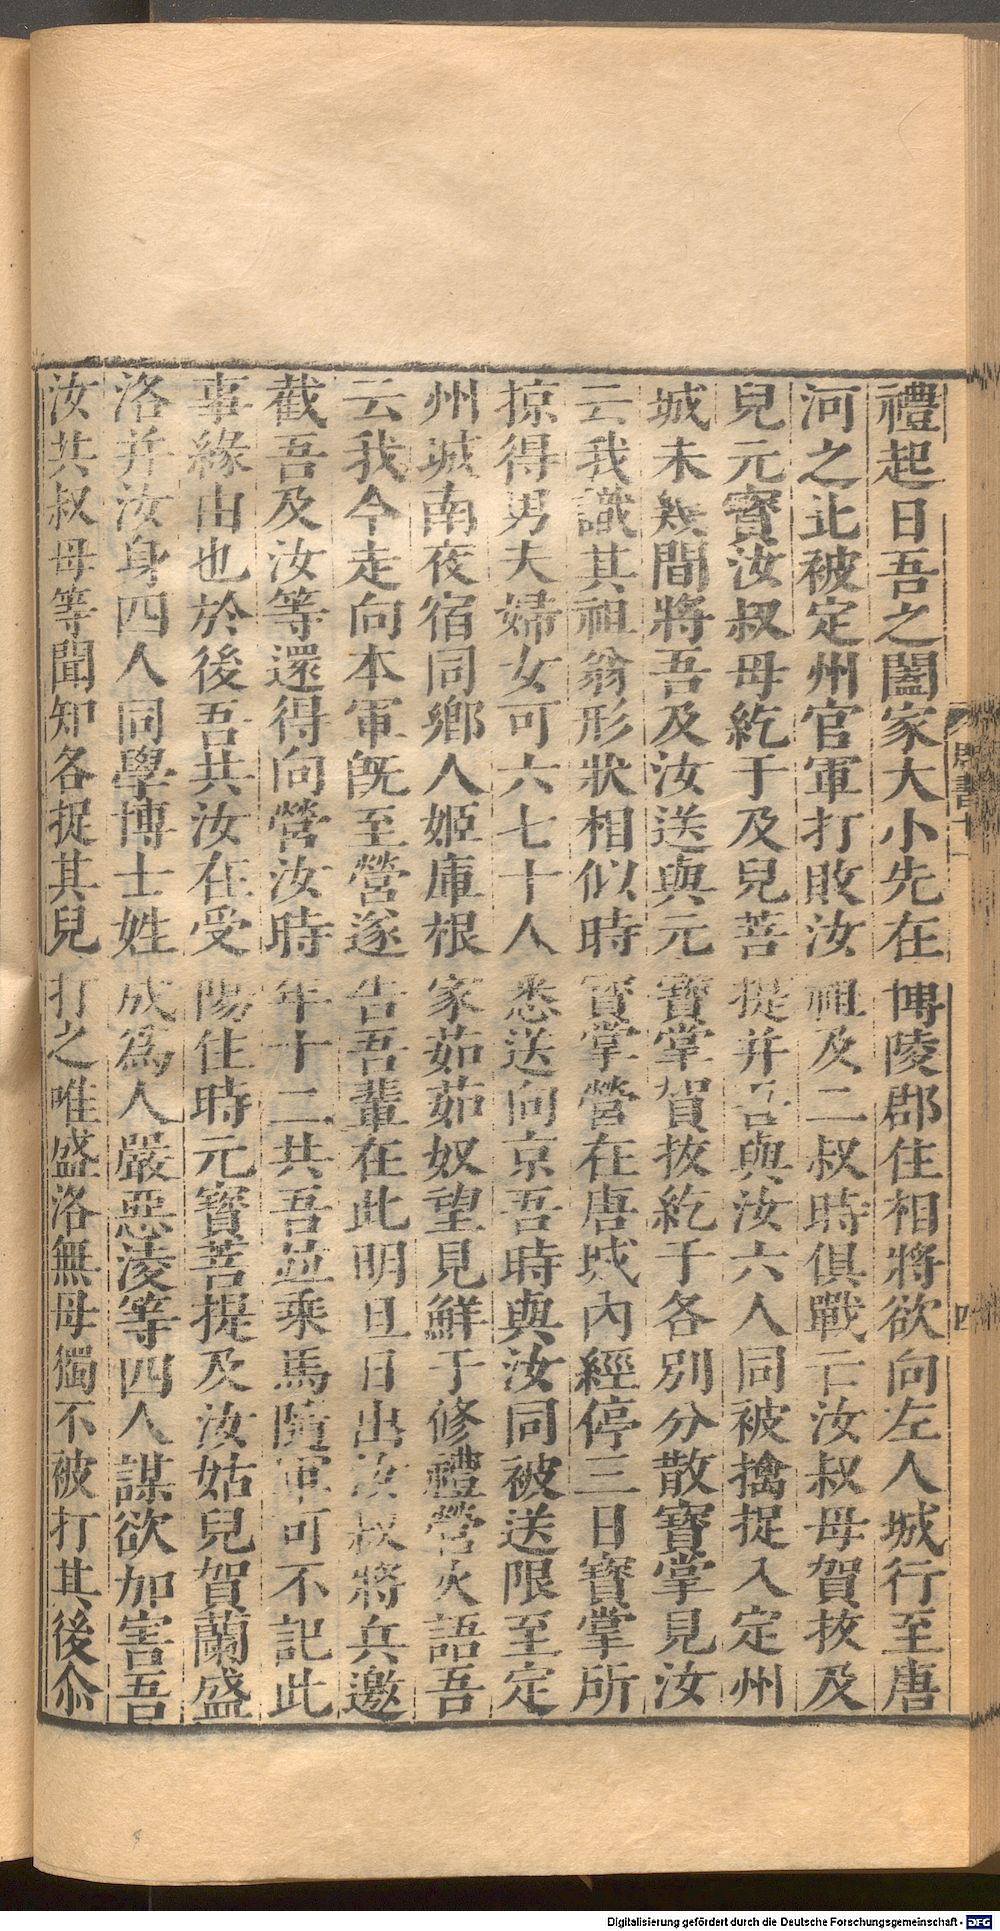 禮起日吾之闔家大小先在博陵郡住相將欲向左人城行至唐
河之北被定州官軍打敗汝祖及二叔時俱戰亡汝叔母賀拔及
兒元寳汝叔母紇干及兒菩提并吾與汝六人同被擒捉入定州
城未幾間將吾及汝送與元寳掌賀拔紇干各別分散寳掌見汝
云我識其祖翁形狀相似時寳掌營在唐城內經停三日寳掌所
掠得男夫婦女可六七十人悉送向京吾時與汝同被送限至定
州城南夜宿同鄉人姬庫根家茹茹奴望見鮮于修禮營火語吾
云我今走向本軍旣至營遂告吾輩在此明旦日出汝叔將兵邀
截吾及汝等還得向營汝時年十二共吾並乘馬隨軍可不記此
事緣由也於後吾共汝在受陽住時元寳菩提及汝姑兒賀蘭盛
洛并汝身四人同學博士姓成爲人嚴惡淩等四人謀欲加害吾
汝共叔母等聞知各捉其兒打之唯盛洛無母獨不被打其後尒
周書十一
四
Digitalisierung gefördert durch die Deutsche Forschungsgemeinschaft - DFG